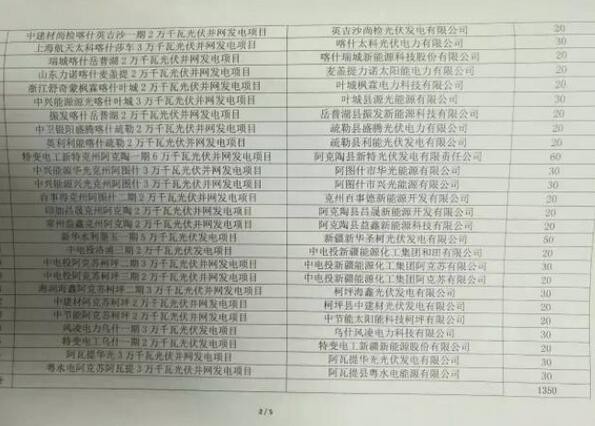 中建材尚检喀什英吉沙一期2万千瓦光伏并网发电项目 英吉沙尚检光伏发电有限公司 20
上海航天太科喀什莎车3万千瓦光伏并网发电项目 喀什太科光伏电力有限公司 30
瑞城喀什岳普湖2万千瓦光伏并网发电项目 喀什瑞城新能源科技股份有限公司 20
山东力诺喀什麦盖提2万千瓦光伏并网发电项目 麦盖提力诺太阳能电力有限公司 20
浙江舒奇蒙枫霖喀什叶城2万千瓦光伏并网发电项目 叶城枫霖电力科技有限公司 20
中兴能源源光喀什叶城3万千瓦光伏并网发电项目 叶城县源光能源有限公司 30
振发喀什岳普湖2万千瓦光伏并网发电项目 岳普湖县振发新能源科技有限公司 20
中卫银阳盛腾喀什疏勒2万千瓦光伏并网发电项目 疏勒县盛腾光伏电力有限公司 20
英利利能喀什疏勒2万千瓦光伏并网发电项目 疏勒县利能光伏发电有限公司 20
特变电工新特克州阿克陶一期6万千瓦光伏并网发电项目 阿克陶县新特光伏发电有限责任公司 60
中兴能源华光克州阿图什3万千瓦光伏并网发电项目 阿图什市华光能源有限公司 30
中兴能源兴光克州阿图什3万千瓦光伏并网发电项目 阿图什市兴光能源有限公司 30
百事得克州阿图什二期2万千瓦光伏并网发电项目 克州百事德新能源开发有限公司 20
印加昌晟克州阿克陶2万千瓦光伏并网发电项目 阿克陶县昌晟新能源开发有限公司 20
常州益鑫克州阿克陶2万千瓦光伏并网发电项目 阿克陶县益鑫新能源科技有限公司 20
新华水利墨玉一期5万千瓦光伏发电项目 新疆新华圣树光伏发电有限公司 50
中电投洛浦二期3万千瓦光伏发电项目 中电投新疆能源化工集团和田有限公司
中电投阿克苏柯坪二期3万千瓦光伏并网发电项目 中电投新疆能源化工集团阿克苏有限公司 30
中电投阿克苏柯坪三期2万千瓦光伏并网发电项目 中电投新疆能源化工集团阿克苏有限公司 20
海润海鑫阿克苏柯坪3万千瓦光伏并网发电项目 柯坪海鑫光伏发电有限公司 30
中建材阿克苏柯坪2万千瓦光伏并网发电项目 柯坪县中建材光伏发电有限公司 20
中节能阿克苏柯坪2万千瓦光伏并网发电项目 中节能太阳能科技柯坪有限公司 20
风凌电力乌什一期3万千瓦光伏发电项目 乌什风凌电力科技有限公司 30
特变电工乌什二期2万千瓦光伏发电项目 特变电工新疆新能源股份有限公司 20
阿瓦提华光3万千瓦光伏并网发电项目 阿瓦提华光光伏发电有限公司 30
粤水电阿克苏阿瓦提3万千瓦光伏并网发电项目 阿瓦提县粤水电能源有限公司 30
1350
2/5